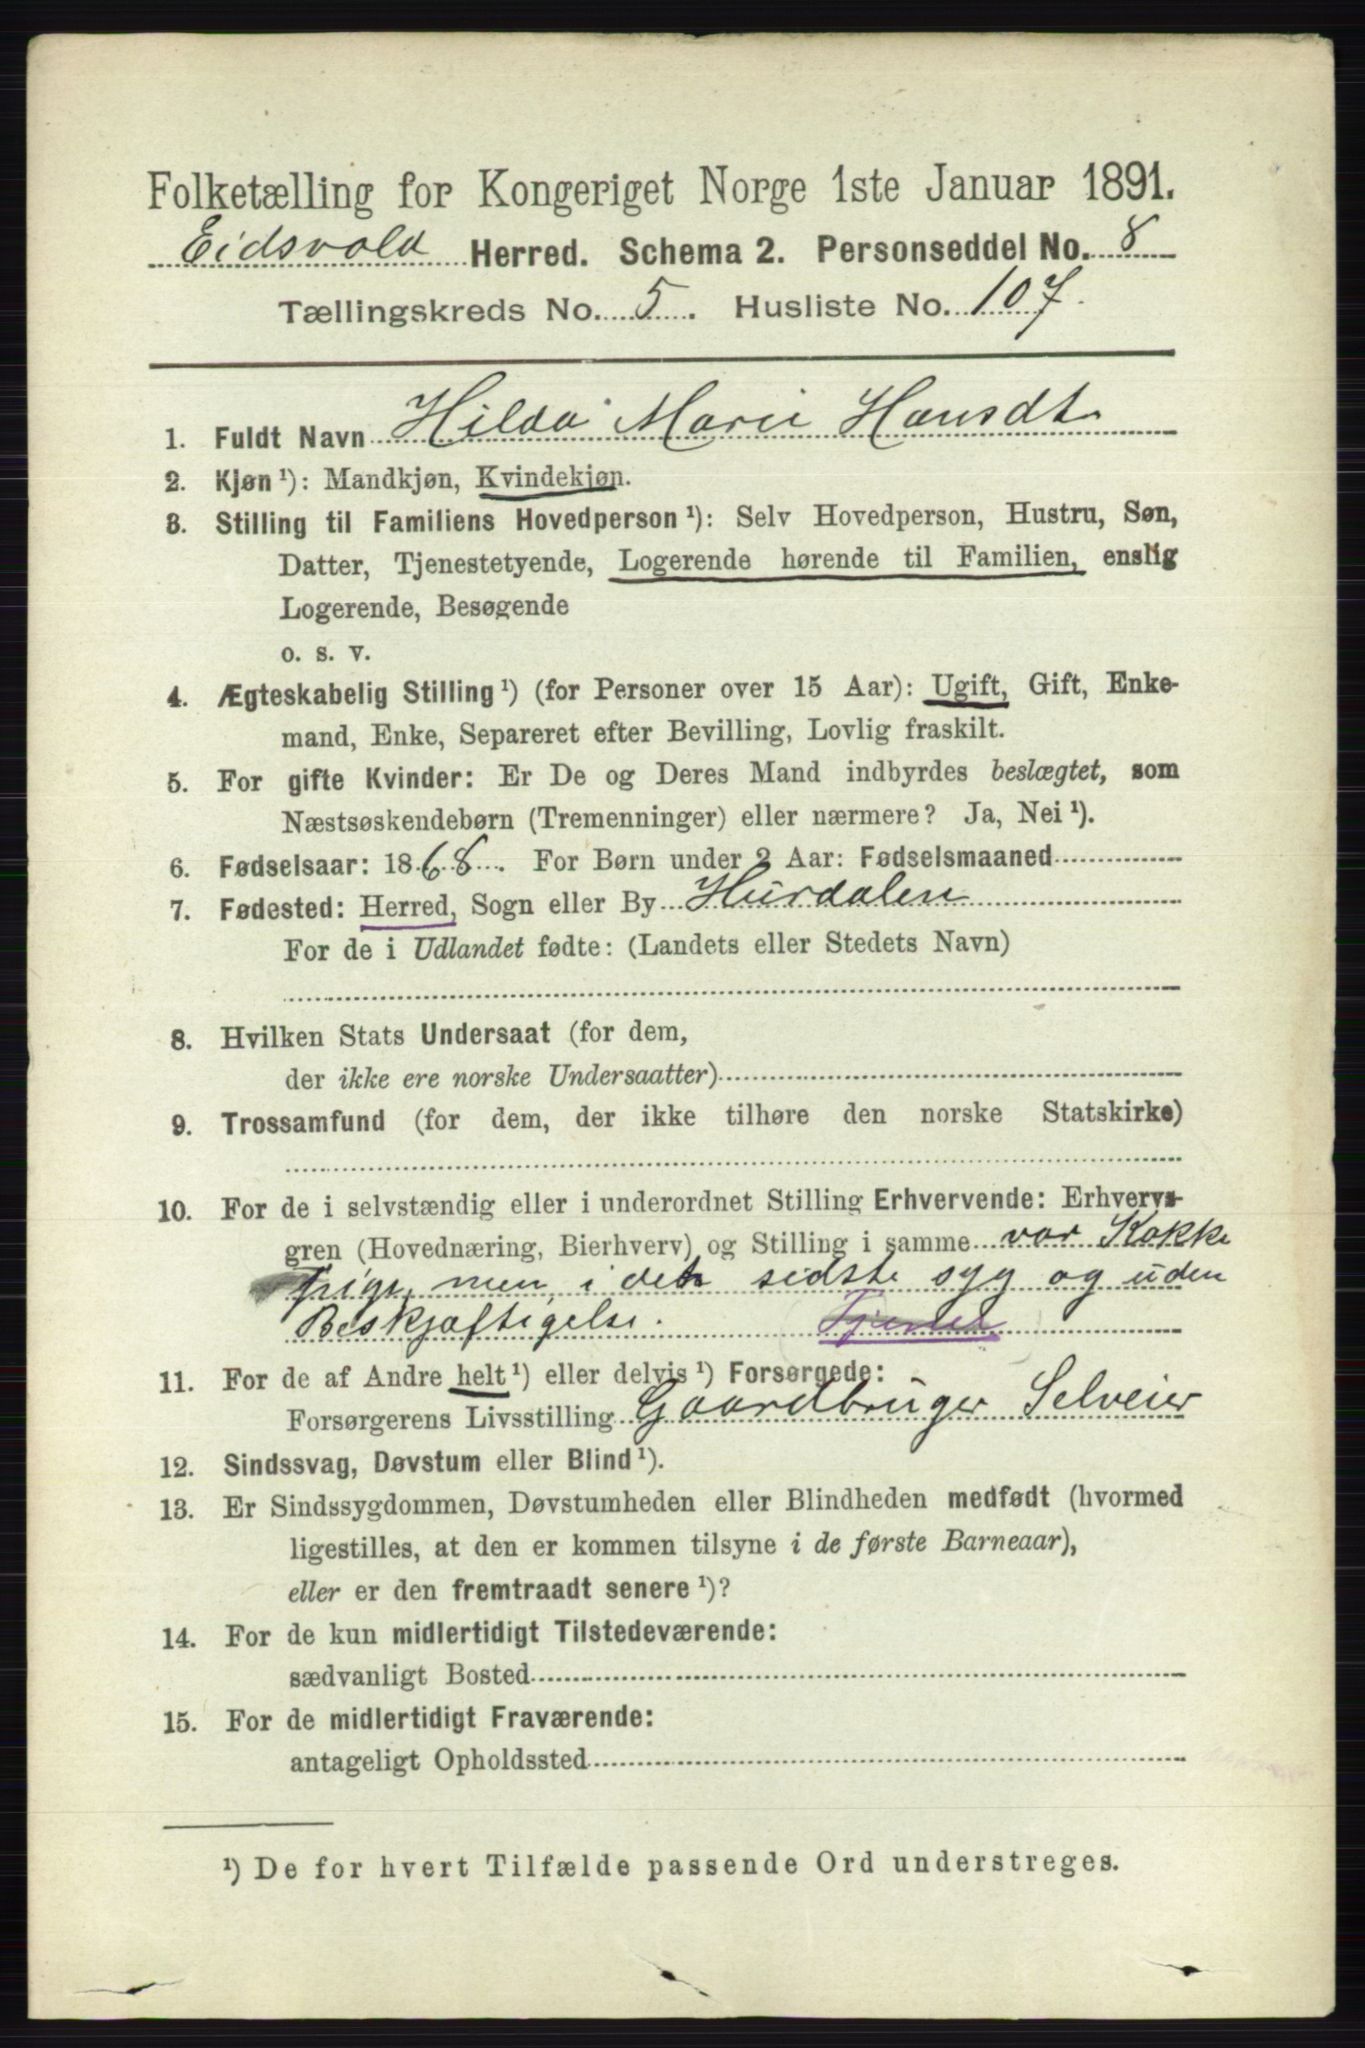 Folketælling for Kongeriget Norge 1ste Januar 1891.
Eidsvold Herred. Schema 2. Personseddel No. 8
Tællingskreds No. 5. Husliste No. 107.
1. Fuldt Navn Hilda Marie Hansdt
2. Kjøn ¹): Mandkjøn, Kvindekjøn.
3. Stilling til Familiens Hovedperson ¹): Selv Hovedperson, Hustru, Søn,
Datter, Tjenestetyende, Logerende hørende til Familien, enslig
Logerende, Besøgende
o. s. v.
4. Ægteskabelig Stilling ¹) (for Personer over 15 Aar): Ugift, Gift, Enke-
mand, Enke, Separeret efter Bevilling, Lovlig fraskilt.
5. For gifte Kvinder: Er De og Deres Mand indbyrdes beslægtet, som
Næstsøskendebørn (Tremenninger) eller nærmere? Ja, Nei ¹).
6. Fødselsaar: 1868. For Børn under 2 Aar: Fødselsmaaned
7. Fødested: Herred, Sogn eller By Hurdalen
For de i Udlandet fødte: (Landets eller Stedets Navn)
8. Hvilken Stats Undersaat (for dem,
der ikke ere norske Undersaatter)
9. Trossamfund (for dem, der ikke tilhøre den norske Statskirke)
10. For de i selvstændig eller i underordnet Stilling Erhvervende: Erhvervs-
gren (Hovednæring, Bierhverv) og Stilling i samme var Kokke
pige, men i det sidste syg og uden
Beskjæftigelse. Tjener
11. For de af Andre helt ¹) eller delvis ¹) Forsørgede:
Forsørgerens Livsstilling Gaardbruger Selveier
12. Sindssvag, Døvstum eller Blind ¹).
13. Er Sindssygdommen, Døvstumheden eller Blindheden medfødt (hvormed
ligestilles, at den er kommen tilsyne i de første Barneaar),
eller er den fremtraadt senere ¹)?
14. For de kun midlertidigt Tilstedeværende:
sædvanligt Bosted
15. For de midlertidigt Fraværende:
antageligt Opholdssted
¹) De for hvert Tilfælde passende Ord understreges.